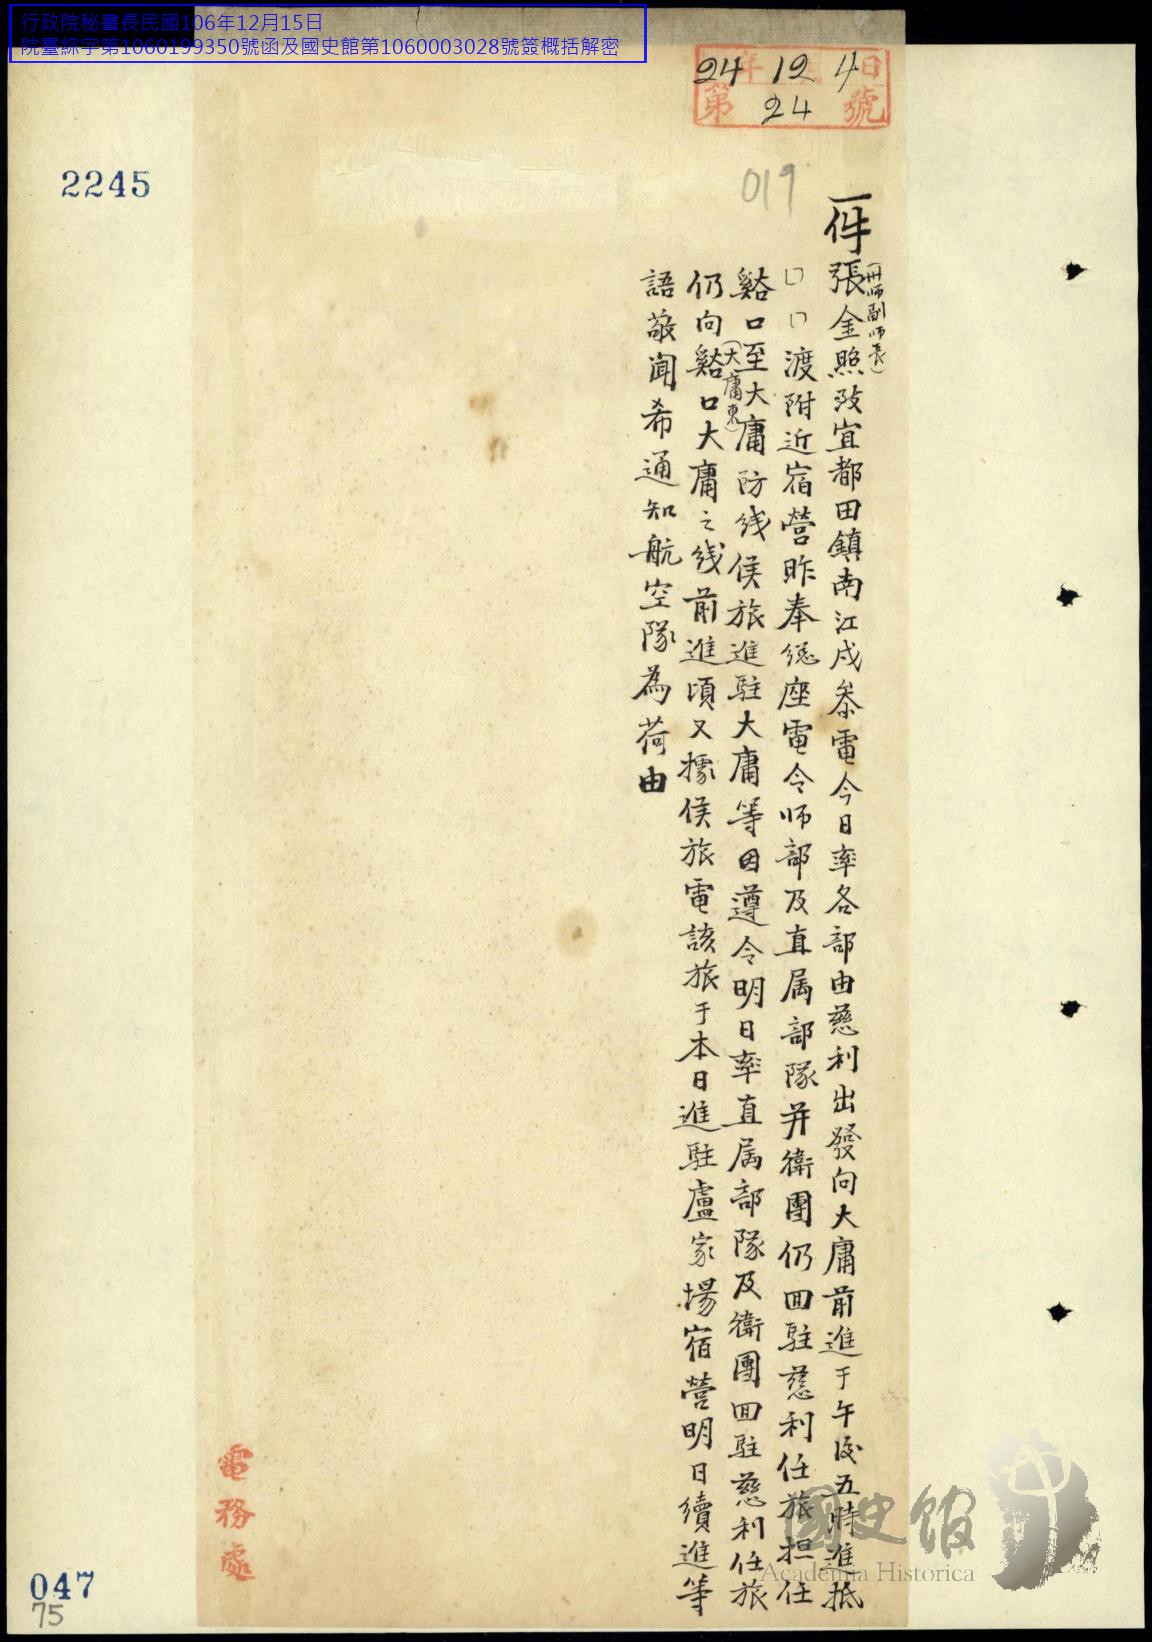 行政院秘書長民國106年12月15日
院臺綜字第1060199350號函及國史館第1060003028號簽概括解密
24年12月4日
第24號
2245
019
一件張金照致宜都田鎮南江戌叅電今日率各部由慈利出發向大庸前進于午後五時進抵
(冊师副师長)
口口渡附近宿營昨奉總座電令师部及直属部隊并衛團仍回駐慈利任旅担任
谿口至大庸防线侯旅進駐大庸等因遵令明日率直属部隊及衛團回駐慈利任旅
(大庸東)
仍向谿口大庸之线前進頃又據侯旅電該旅于本日進駐盧家場宿營明日續進等
語敬聞希通知航空隊為荷由
電務處
國史館
Academia Historica
047
75